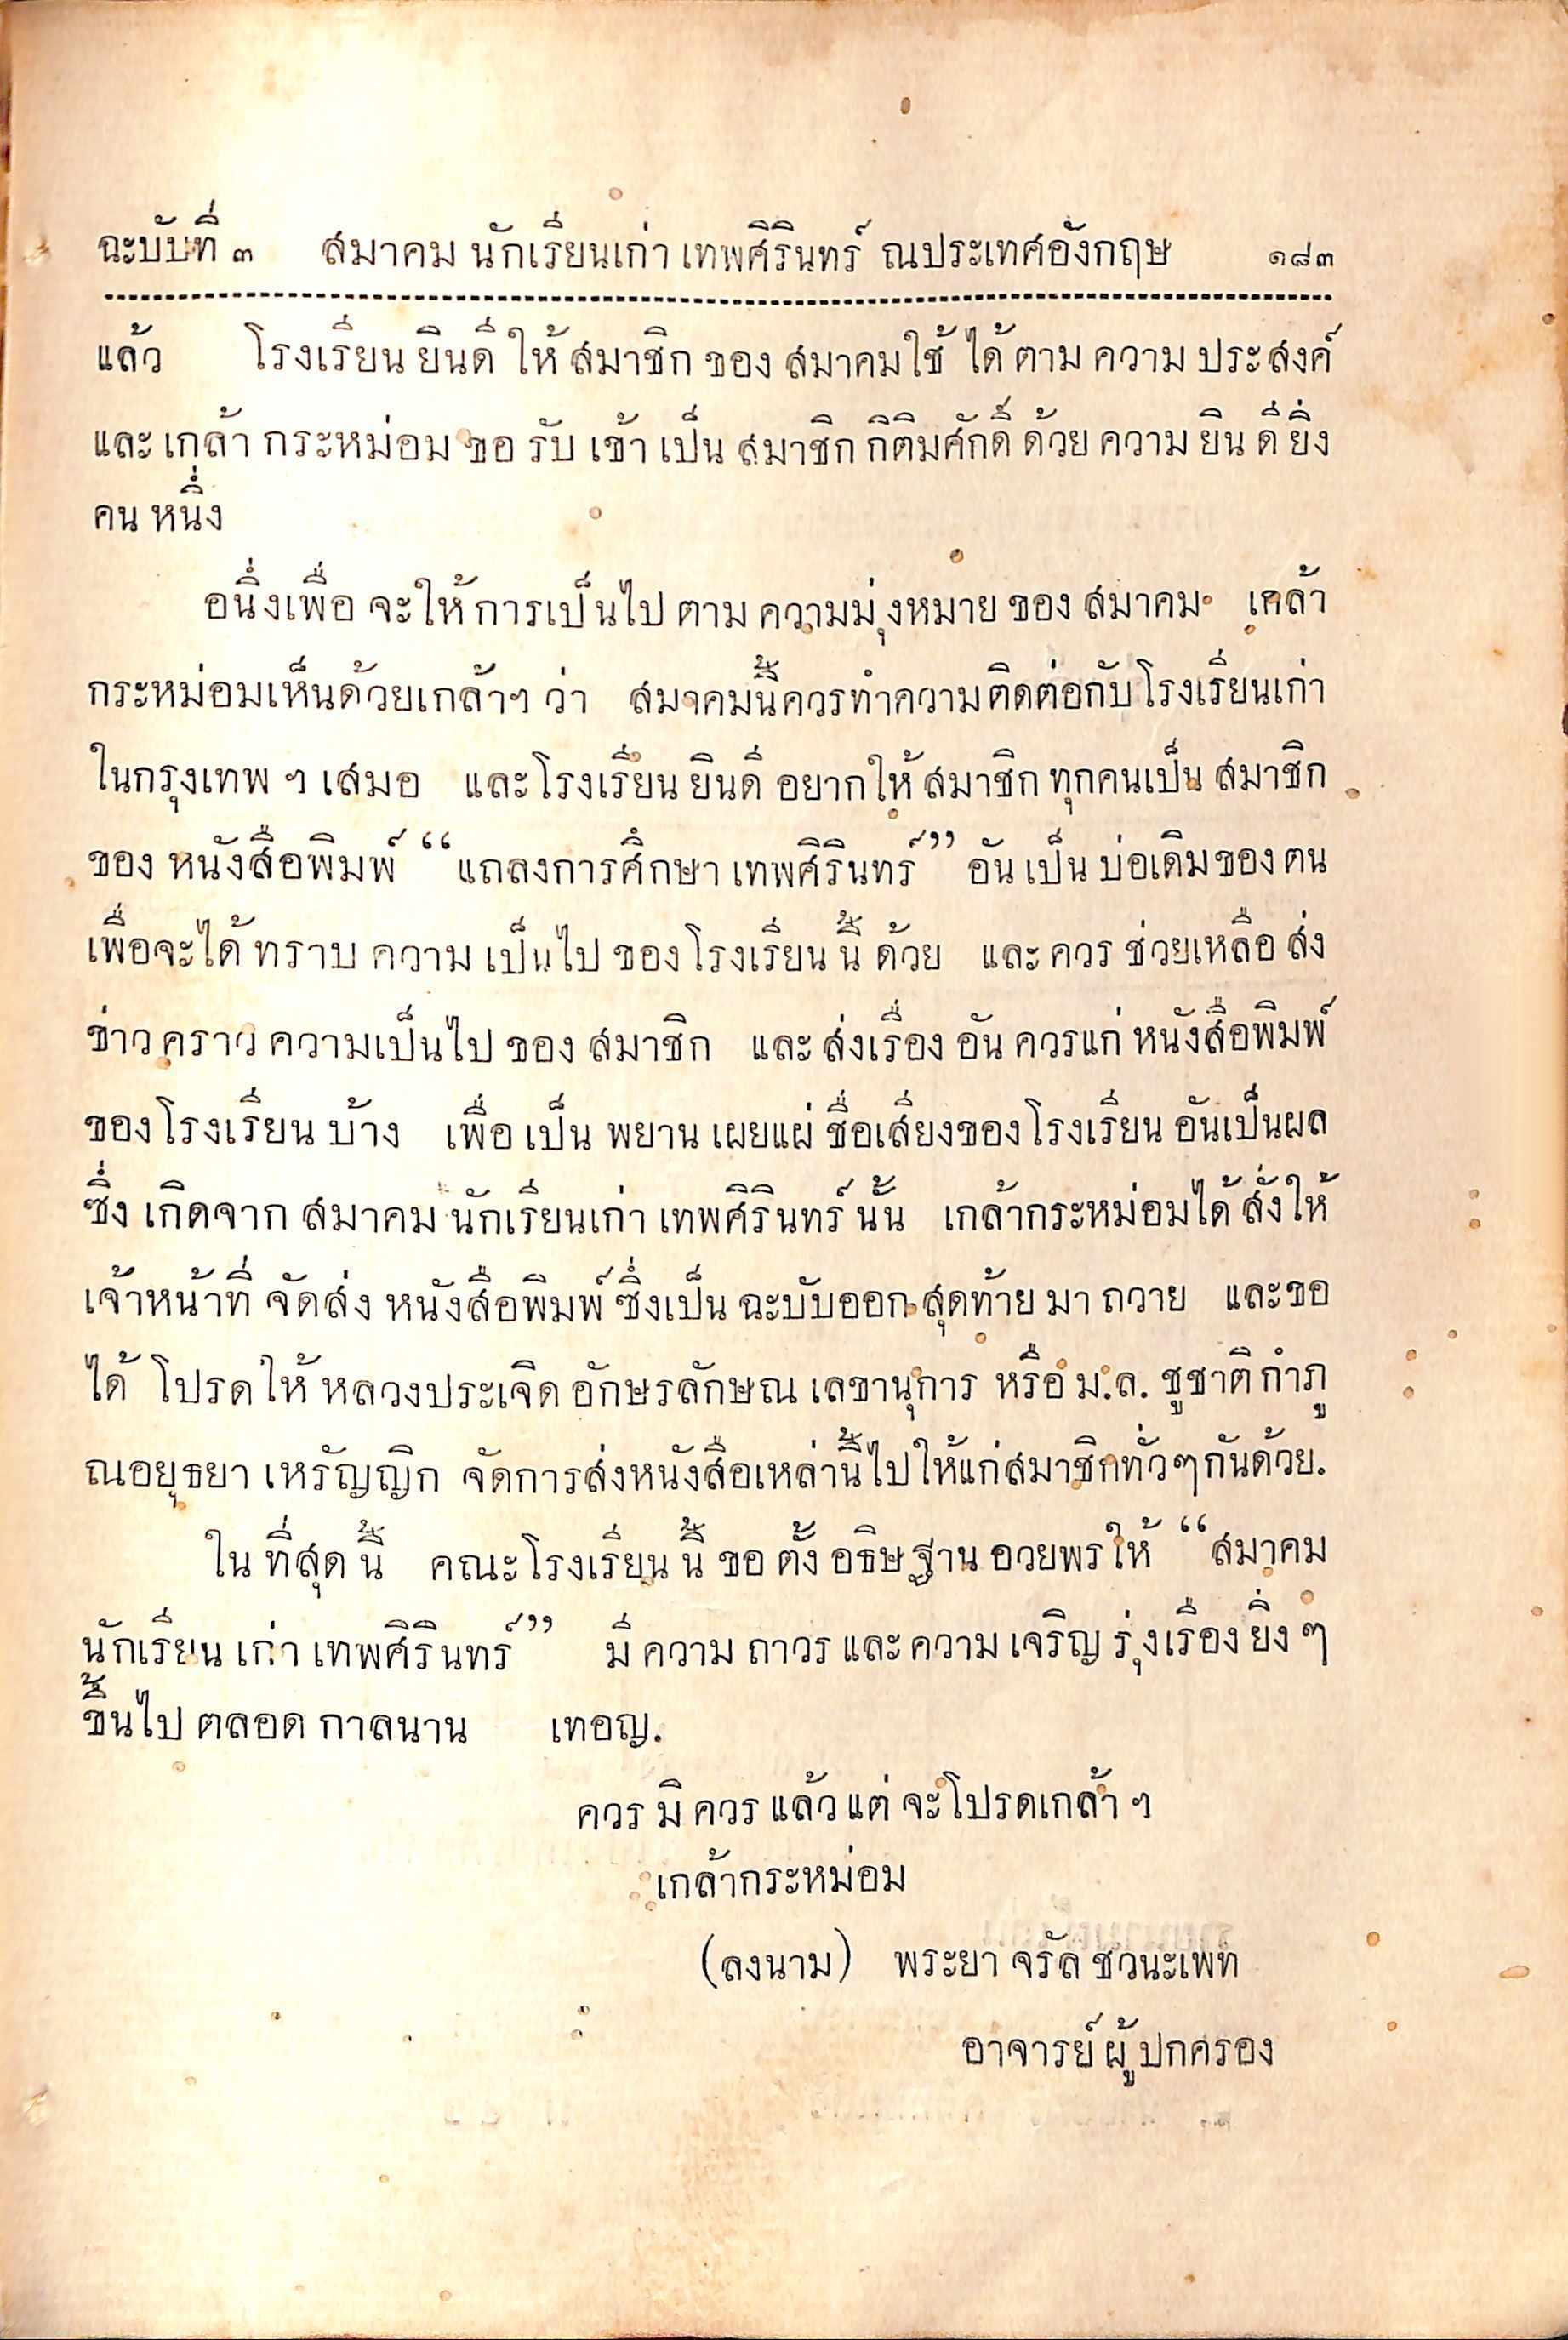 ฉะบับที่ ๓ สมาคม นักเรียนเก่า เทพศิรินทร์ ณประเทศอังกฤษ ๑๘๓
แล้ว โรงเรียน ยินดี ให้ สมาชิก ของ สมาคมใช้ ได้ ตาม ความ ประสงค์
และ เกล้า กระหม่อม ขอ รับ เข้า เป็น สมาชิก กิติมศักดิ์ ด้วย ความ ยิน ดี ยิ่ง
คน หนึ่ง
อนึ่งเพื่อ จะให้ การเป็นไป ตาม ความมุ่งหมาย ของ สมาคม เกล้า
กระหม่อมเห็นด้วยเกล้าฯ ว่า สมาคมนี้ควรทำความติดต่อกับโรงเรียนเก่า
ในกรุงเทพ ฯ เสมอ และโรงเรียน ยินดี อยากให้ สมาชิก ทุกคนเป็น สมาชิก
ของ หนังสือพิมพ์ “แถลงการศึกษา เทพศิรินทร์” อัน เป็น บ่อเดิมของ ตน
เพื่อจะได้ ทราบ ความ เป็นไป ของ โรงเรียน นี้ ด้วย และ ควร ช่วยเหลือ ส่ง
ข่าว คราว ความเป็นไป ของ สมาชิก และ ส่งเรื่อง อัน ควรแก่ หนังสือพิมพ์
ของ โรงเรียน บ้าง เพื่อ เป็น พยาน เผยแผ่ ชื่อเสียงของ โรงเรียน อันเป็นผล
ซึ่ง เกิดจาก สมาคม นักเรียนเก่า เทพศิรินทร์ นั้น เกล้ากระหม่อมได้ สั่งให้
เจ้าหน้าที่ จัดส่ง หนังสือพิมพ์ ซึ่งเป็น ฉะบับออก สุดท้าย มา ถวาย และขอ
ได้ โปรด ให้ หลวงประเจิด อักษรลักษณ เลขานุการ หรือ ม.ล. ชูชาติ กำภู
ณอยุธยา เหรัญญิก จัดการส่งหนังสือเหล่านี้ไปให้แก่สมาชิกทั่วๆกันด้วย.
ใน ที่สุด นี้ คณะโรงเรียน นี้ ขอ ตั้ง อธิษฐาน อวยพร ให้ “สมาคม
นักเรียน เก่า เทพศิรินทร์” มี ความ ถาวร และ ความ เจริญ รุ่งเรือง ยิ่ง ๆ
ขึ้นไป ตลอด กาลนาน เทอญ.
ควร มิ ควร แล้ว แต่ จะโปรดเกล้า ฯ
เกล้ากระหม่อม
(ลงนาม) พระยา จรัล ชวนะเพท
อาจารย์ ผู้ ปกครอง